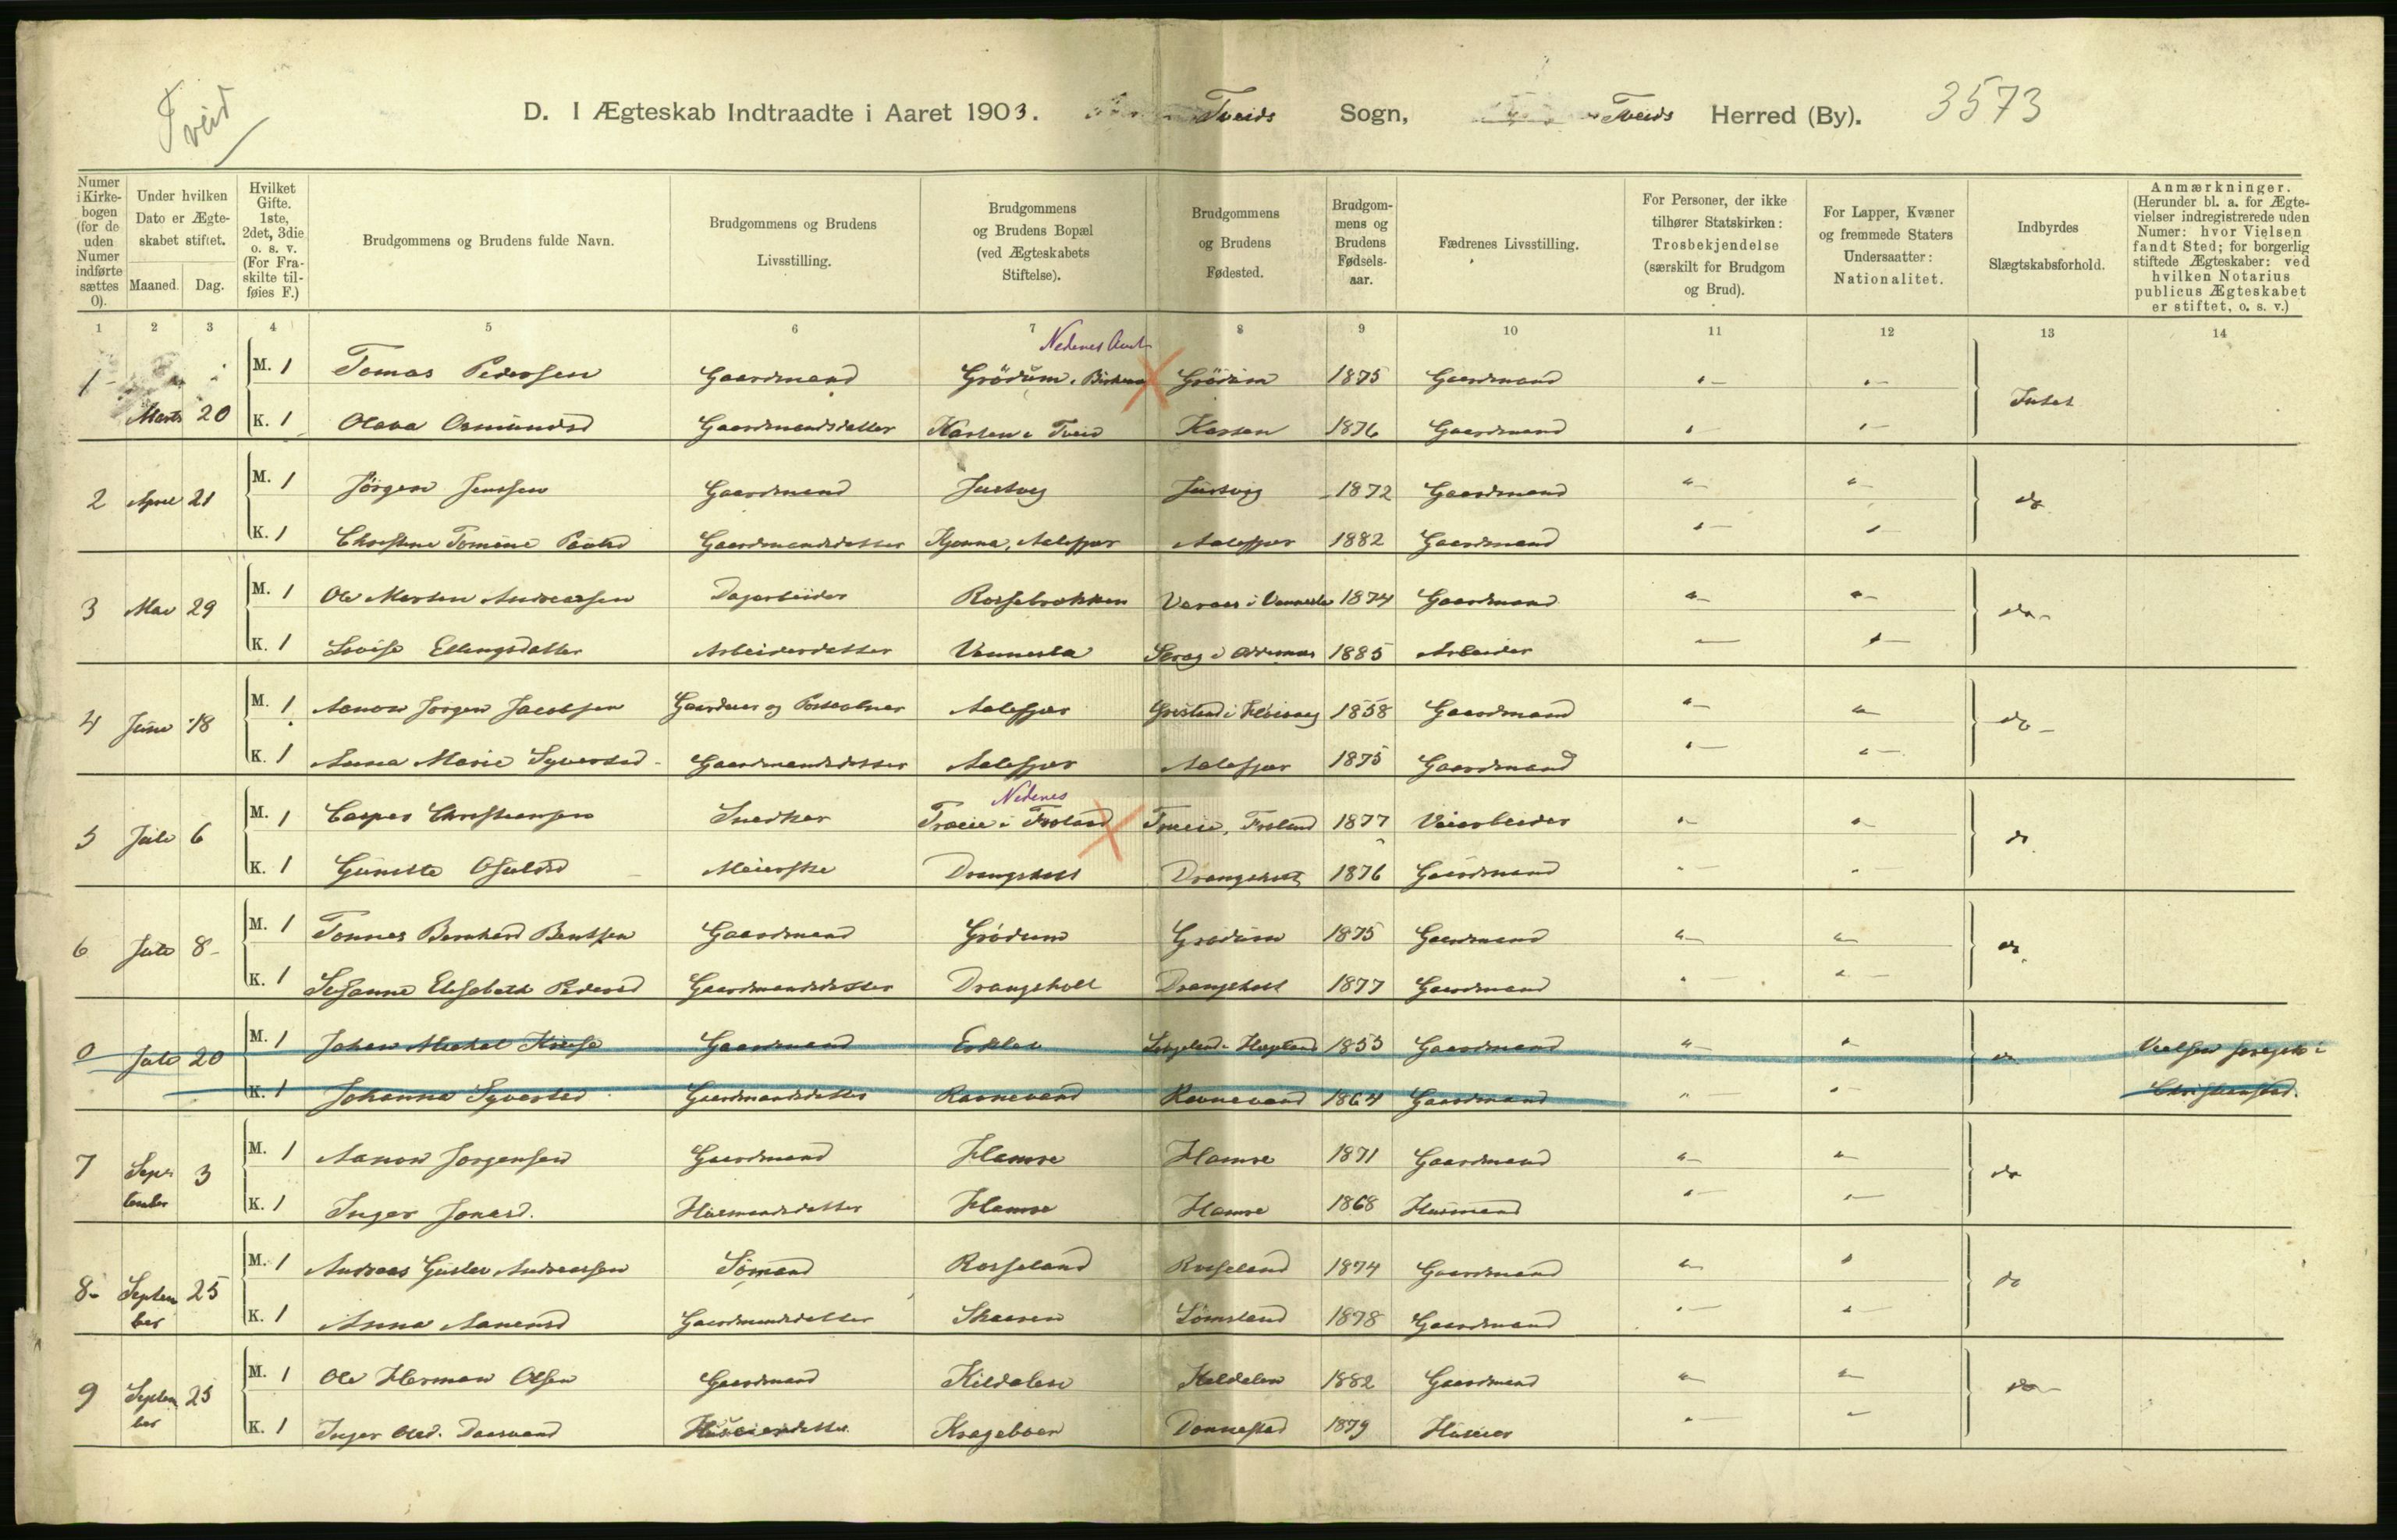 Tveid
D. I Ægteskab Indtraadte i Aaret 1903. Tveids Sogn, Tveids Herred (By). 3573
Numer i Kirkebogen (for de uden Numer indførte sættes 0).
Under hvilken Dato er Ægteskabet stiftet.
Maaned. Dag.
Hvilket Gifte. 1ste, 2det, 3die o. s. v. (For Fraskilte tilføies F.)
Brudgommens og Brudens fulde Navn.
Brudgommens og Brudens Livsstilling.
Brudgommens og Brudens Bopæl (ved Ægteskabets Stiftelse).
Brudgommens og Brudens Fødested.
Brudgommens og Brudens Fødselsaar.
Fædrenes Livsstilling.
For Personer, der ikke tilhører Statskirken: Trosbekjendelse (særskilt for Brudgom og Brud).
For Lapper, Kvæner og fremmede Staters Undersaatter: Nationalitet.
Indbyrdes Slægtskabsforhold.
Anmærkninger. (Herunder bl. a. for Ægtevielser indregistrerede uden Numer: hvor Vielsen fandt Sted; for borgerlig stiftede Ægteskaber: ved hvilken Notarius publicus Ægteskabet er stiftet, o. s. v.)
1 2 3 4 5 6 7 8 9 10 11 12 13 14
Nedenes Amt
1 M. 1 Tomas Pedersen Gaardmand Grödum, Birkenes Grödum 1875 Gaardmand "— "— Intet
Marts 20 K. 1 Olava Osmundsd Gaardmandsdatter Karsen i Tveid Karsen 1876 Gaardmand "— "—
2 April 21 M. 1 Jörgen Jenssen Gaardmand Justvig Justvig 1872 Gaardmand "— "— do
K. 1 Christine Tomine Gaardmandsdatter Aalefjær Aalefjær 1882 Gaardmand "— "—
3 Mai 29 M. 1 Ole Marten Andreassen Dagarbeider Rossebrokken i Vennesla 1874 Gaardmand "— "— do—
K. 1 Lovise Ellingsdatter Arbeiderdatter Vennesla i Oddernes 1885 Arbeider "— "—
4 Juni 18 M. 1 Aanon Jörgen Jacobsen Gaardmand og Postaabner Aalefjær i Høivaag 1858 Gaardmand "— "— do—
K. 1 Anna Marie Syversd Gaardmandsdatter Aalefjær Aalefjær 1875 Gaardmand "— "—
Nedenes
5 Juli 6 M. 1 Casper Christiansen Snedker Træeie i Froland Træeie, Froland 1877 Veiarbeider "— "— do
K. 1 Gunilde Osuldsd Meierske Drangsholt Drangsholt 1876 Gaardmand "— "—
6 Juli 8 M. 1 Tönnes Bernhard Bentsen Gaardmand Grödum Grödum 1875 Gaardmand "— "— do
K. 1 Susanne Elisabeth Pedersd Gaardmandsdatter Drangsholt Drangsholt 1877 Gaardmand "— "—
0 Juli 20 M. 1 Johan Mikal Gaardmand 1853 Gaardmand "— "— do Vielsen foregik i
K. 1 Johanna Syversd Gaardmandsdatter Ravnevand Ravnevand 1864 Gaardmand "— "— Christiansand.
7 September 3 M. 1 Aanon Jorgensen Gaardmand Hamre Hamre 1871 Gaardmand "— "— do
K. 1 Inger Jonasd. Husmandsdatter Hamre Hamre 1868 Husmand "— "—
8 September 25 M. 1 Andreas Gustav Andreassen Sömand Rosseland Rosseland 1874 Gaardmand "— " do
K. 1 Anna Aanensd Gaardmandsdatter Skaaren Lömsland 1878 Gaardmand "— "—
9 September 25 M. 1 Ole Herman Olsen Gaardmand Kildalen Kildalen 1882 Gaardmand "— "— do—
K. 1 Inger Olsd. Daasvand Huseierdatter Krageboen Dönnestad 1879 Huseier "— "—